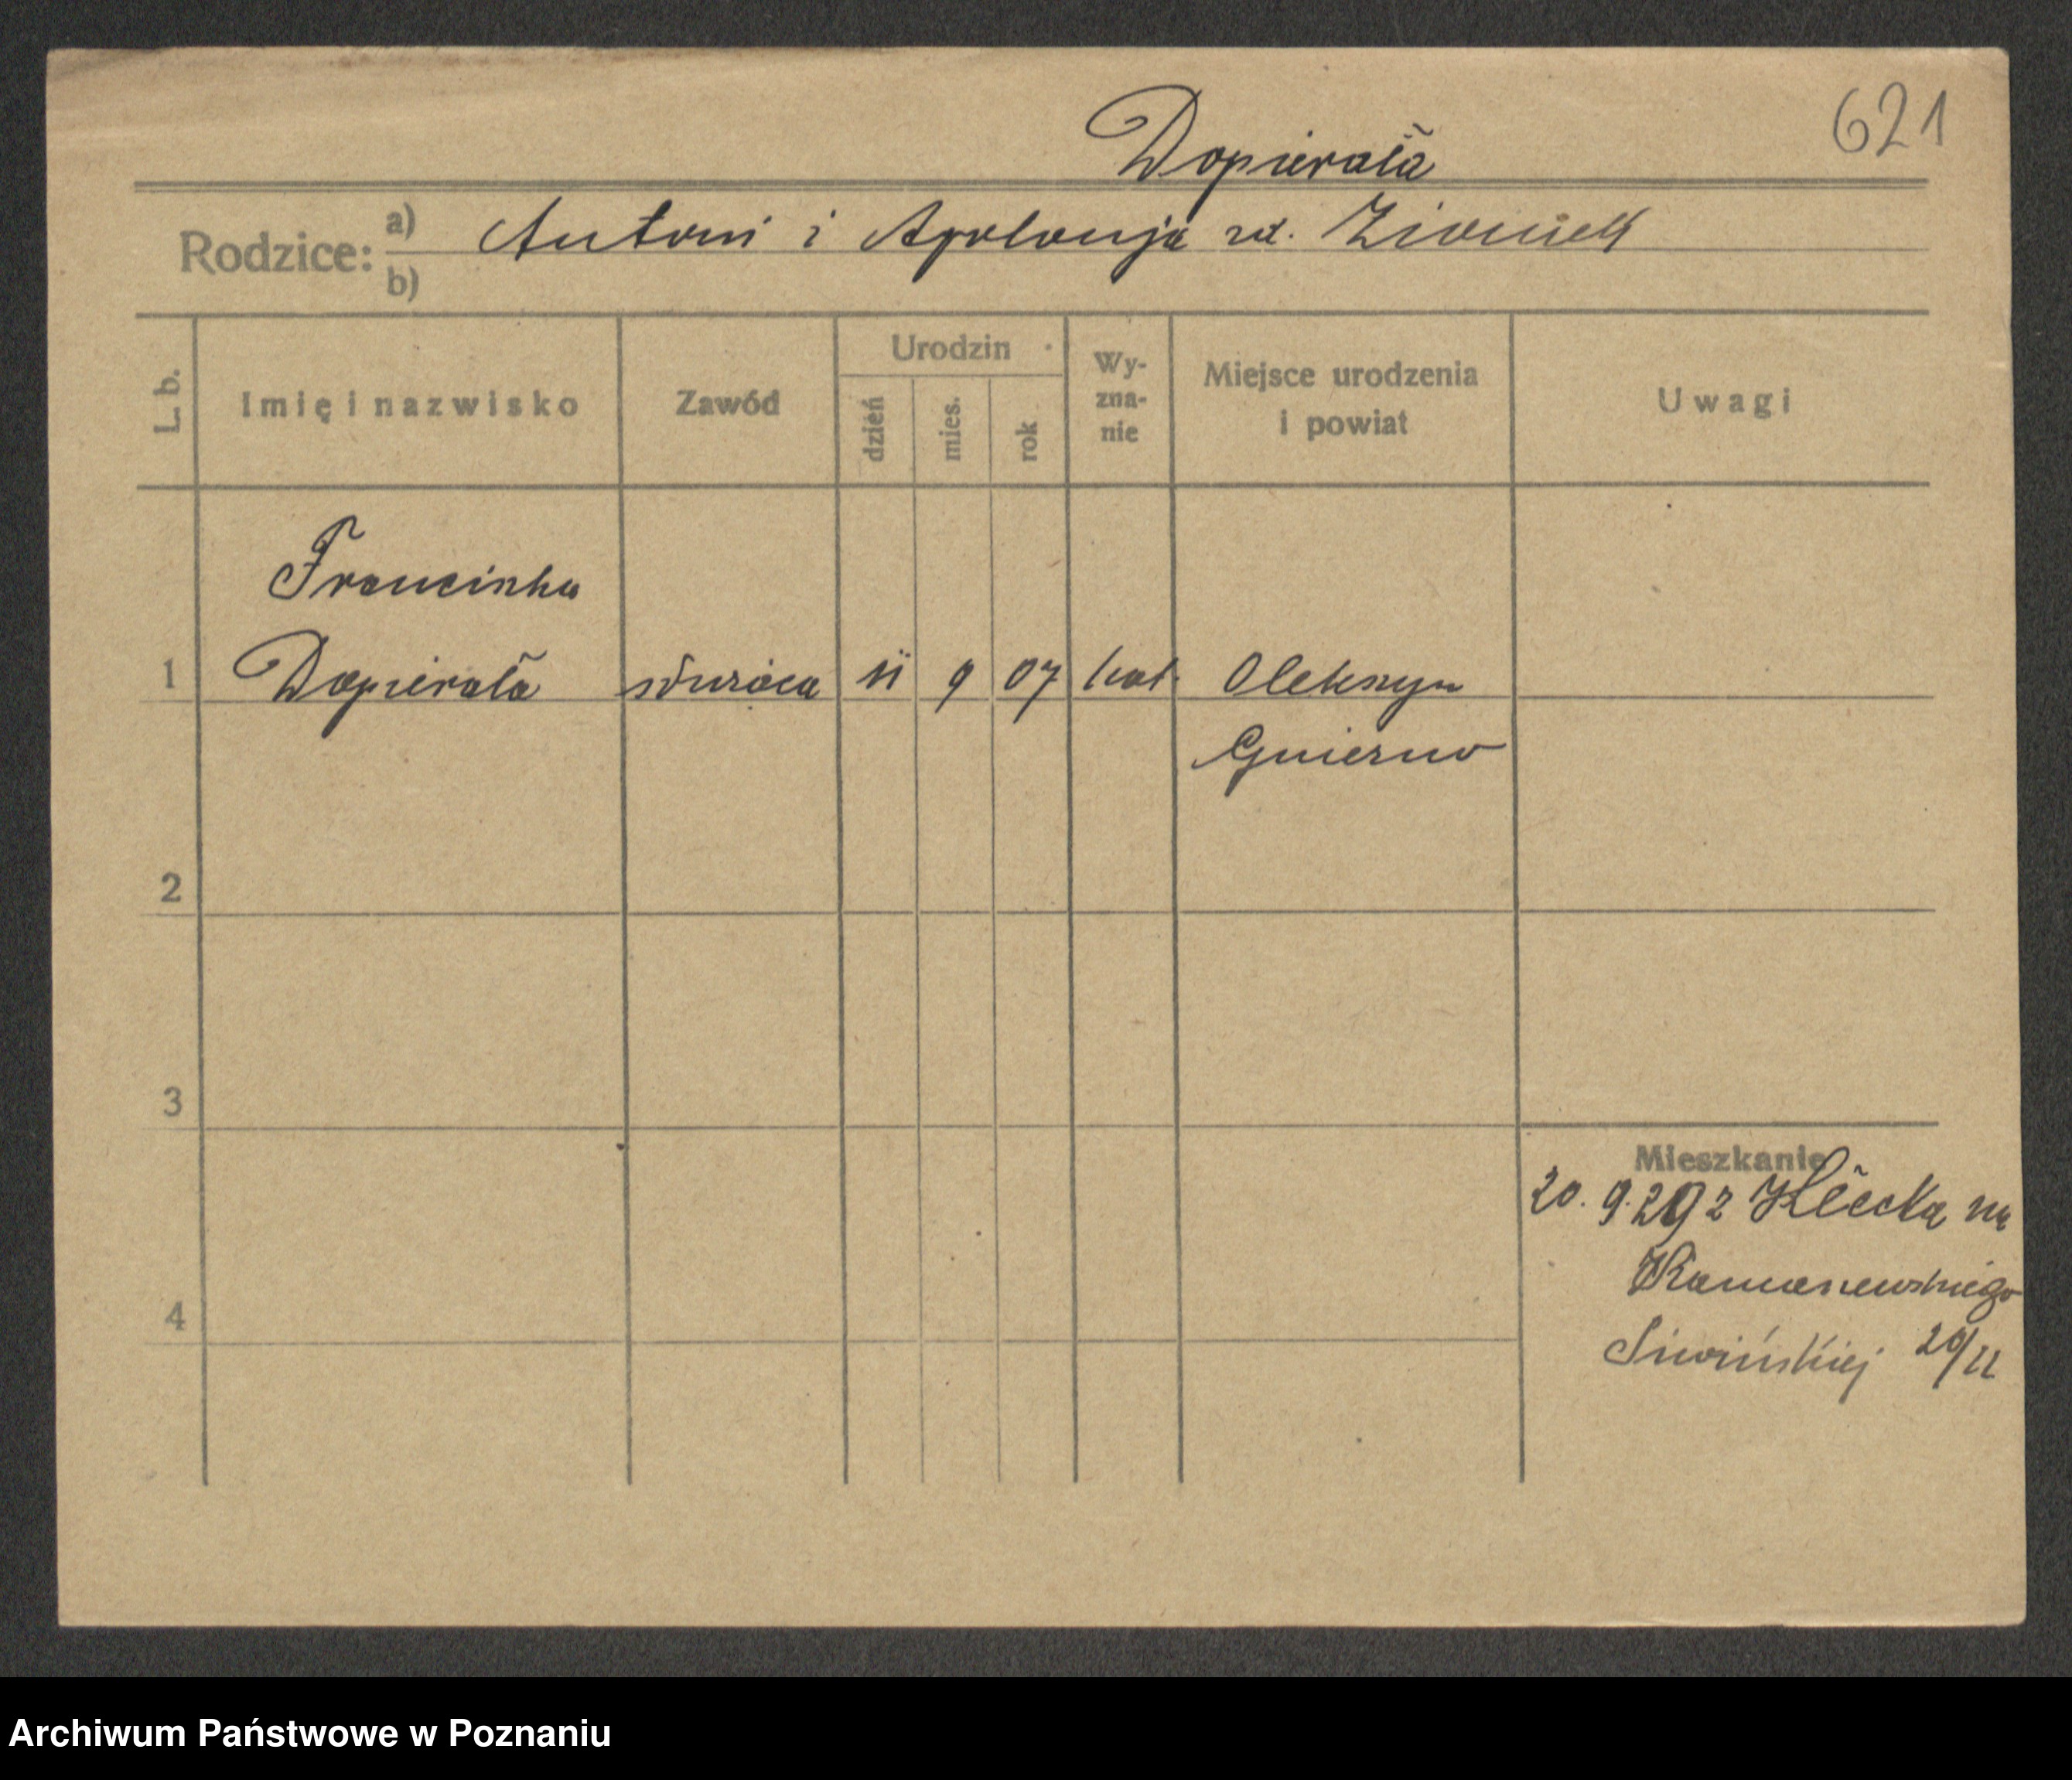 621
Dopierała
Rodzice:
a) Antoni i Apolonja zd.
b)
L. b.
Imię i nazwisko
Zawód
Urodzin
dzień
mies.
rok
Wy-
zna-
nie
Miejsce urodzenia
i powiat
Uwagi
Franciszka
1 Dopierała służąca 11 9 07 kat. Olekszyn
Gniezno
2
3
4
Mieszkanie
20. 9. 29 z Kłecka na
Siwińskiej 20/11
Archiwum Państwowe w Poznaniu